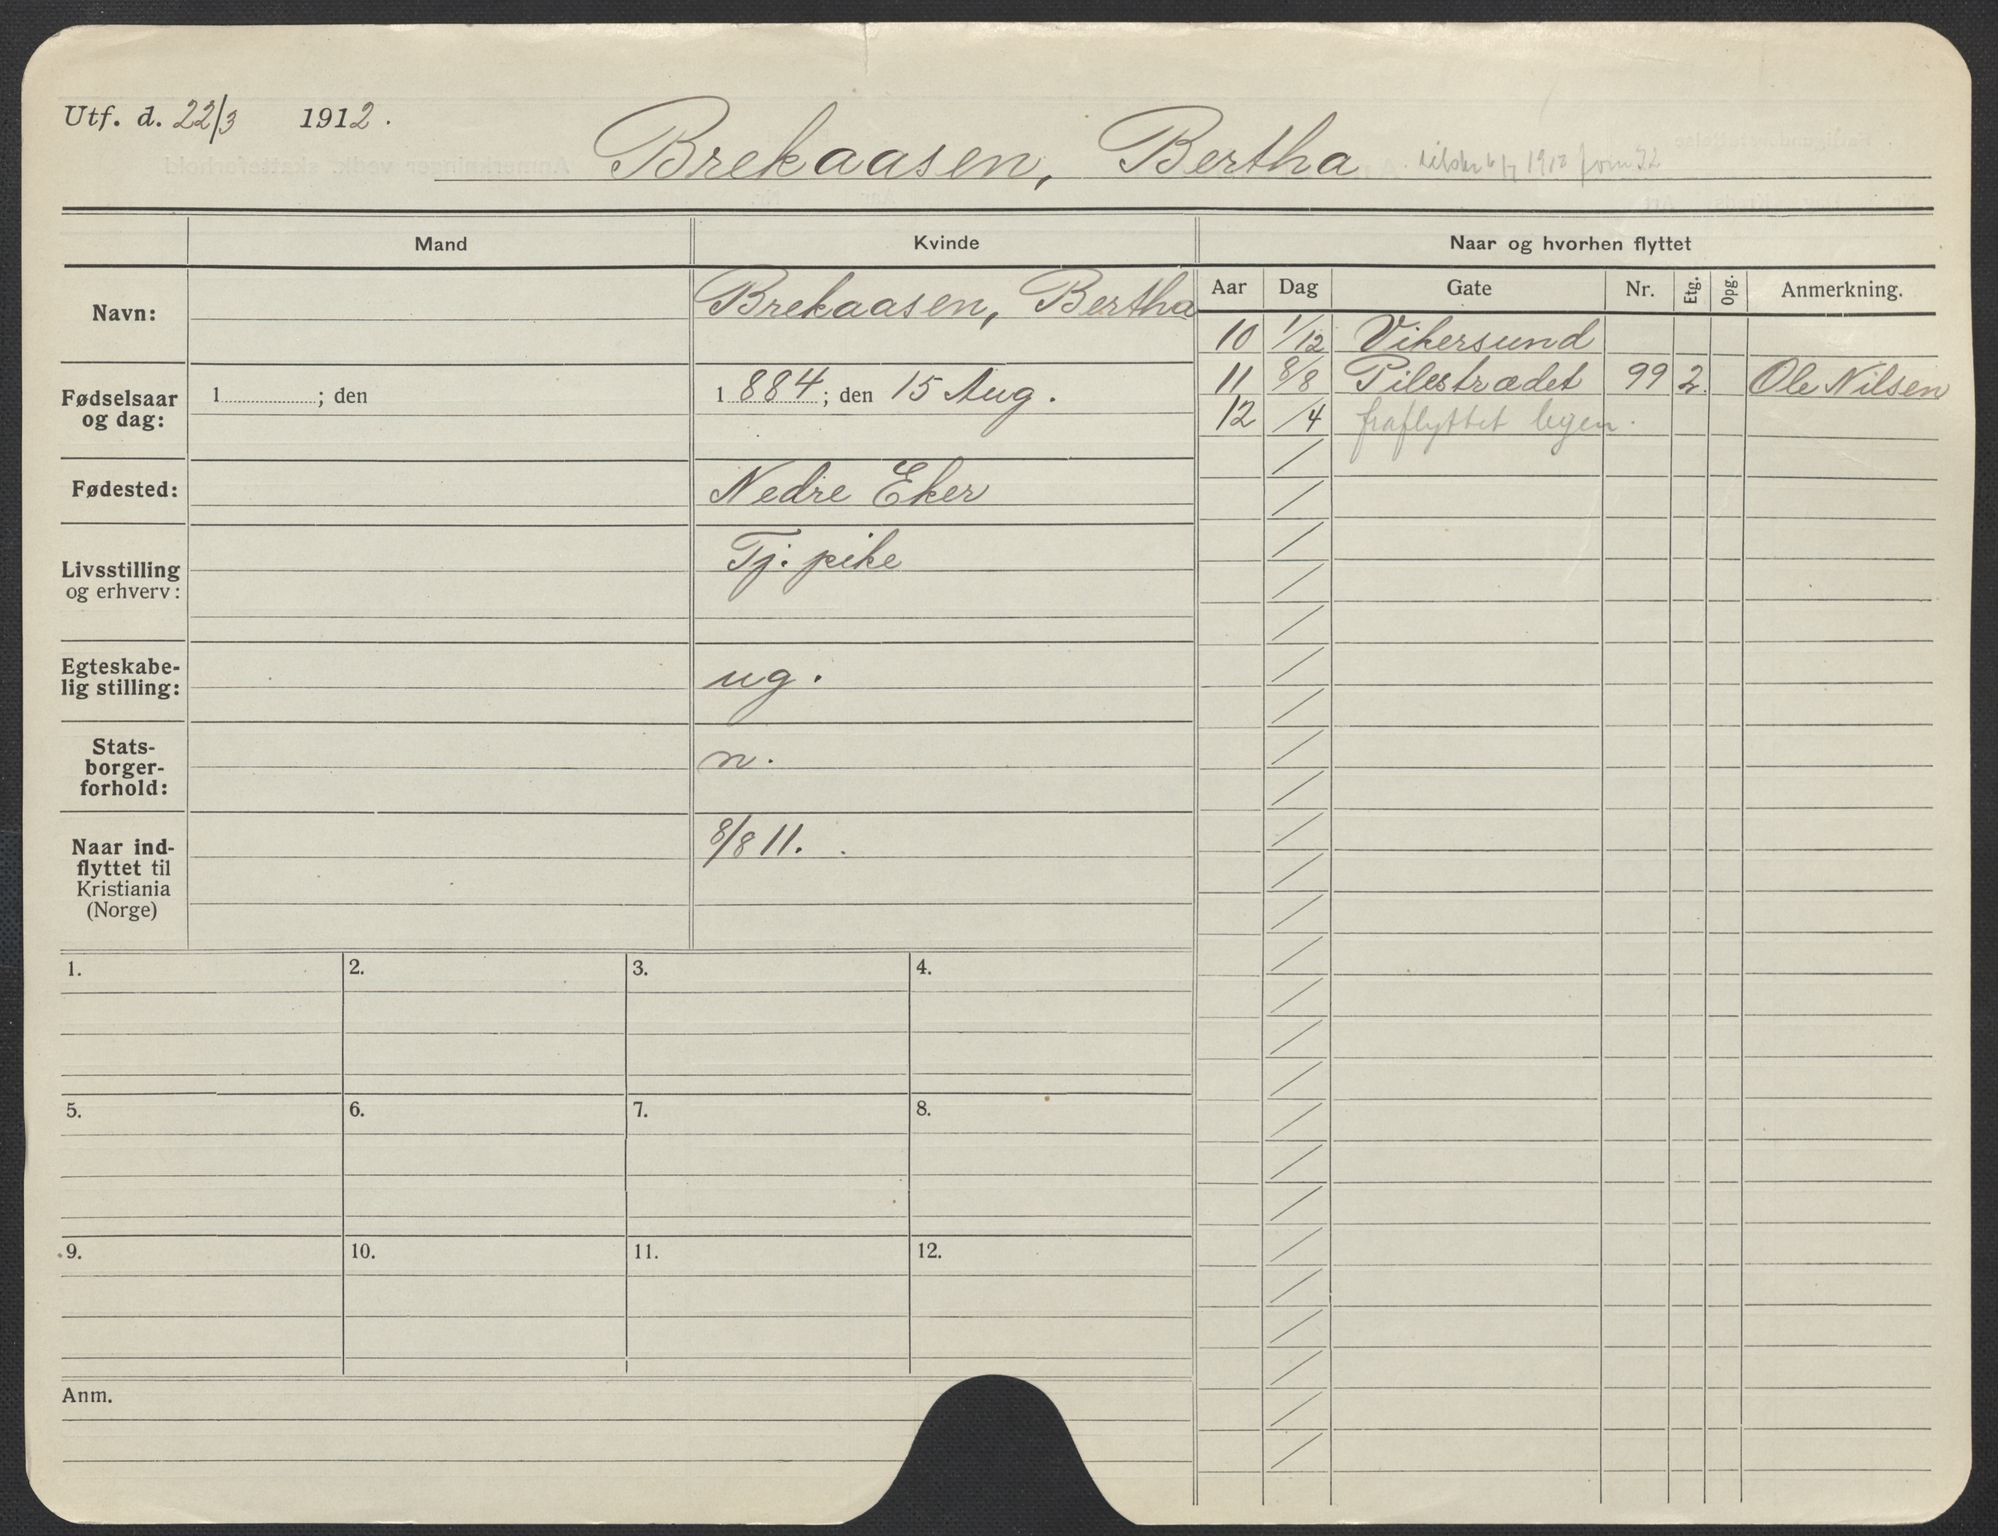 Utf. d. 22/3 1912.
Brekaasen, Bertha
Mand
Kvinde
Naar og hvorhen flyttet
Navn:
Brekaasen, Bertha
Aar Dag Gate Nr. Etg. Opg. Anmerkning.
10 1/12 Vikersund
11 8/8 Pilestrædet 99 2. Ole Nilsen
12 /4 fraflyttet byen.
Fødselsaar
og dag:
1 ; den
1884; den 15 Aug.
Fødested:
Nedre Eker
Livsstilling
og erhverv:
Tj. pike
Egteskabe-
lig stilling:
ug.
Stats-
borger-
forhold:
n.
Naar ind-
flyttet til
Kristiania
(Norge)
8/8 11.
1. 2. 3. 4.
5. 6. 7. 8.
9. 10. 11. 12.
Anm.